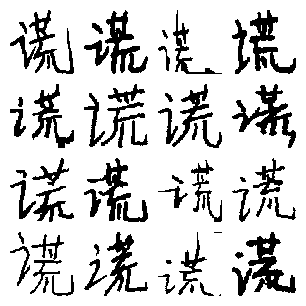 谎谎谎谎
谎谎谎谎
谎谎谎谎
谎谎谎谎